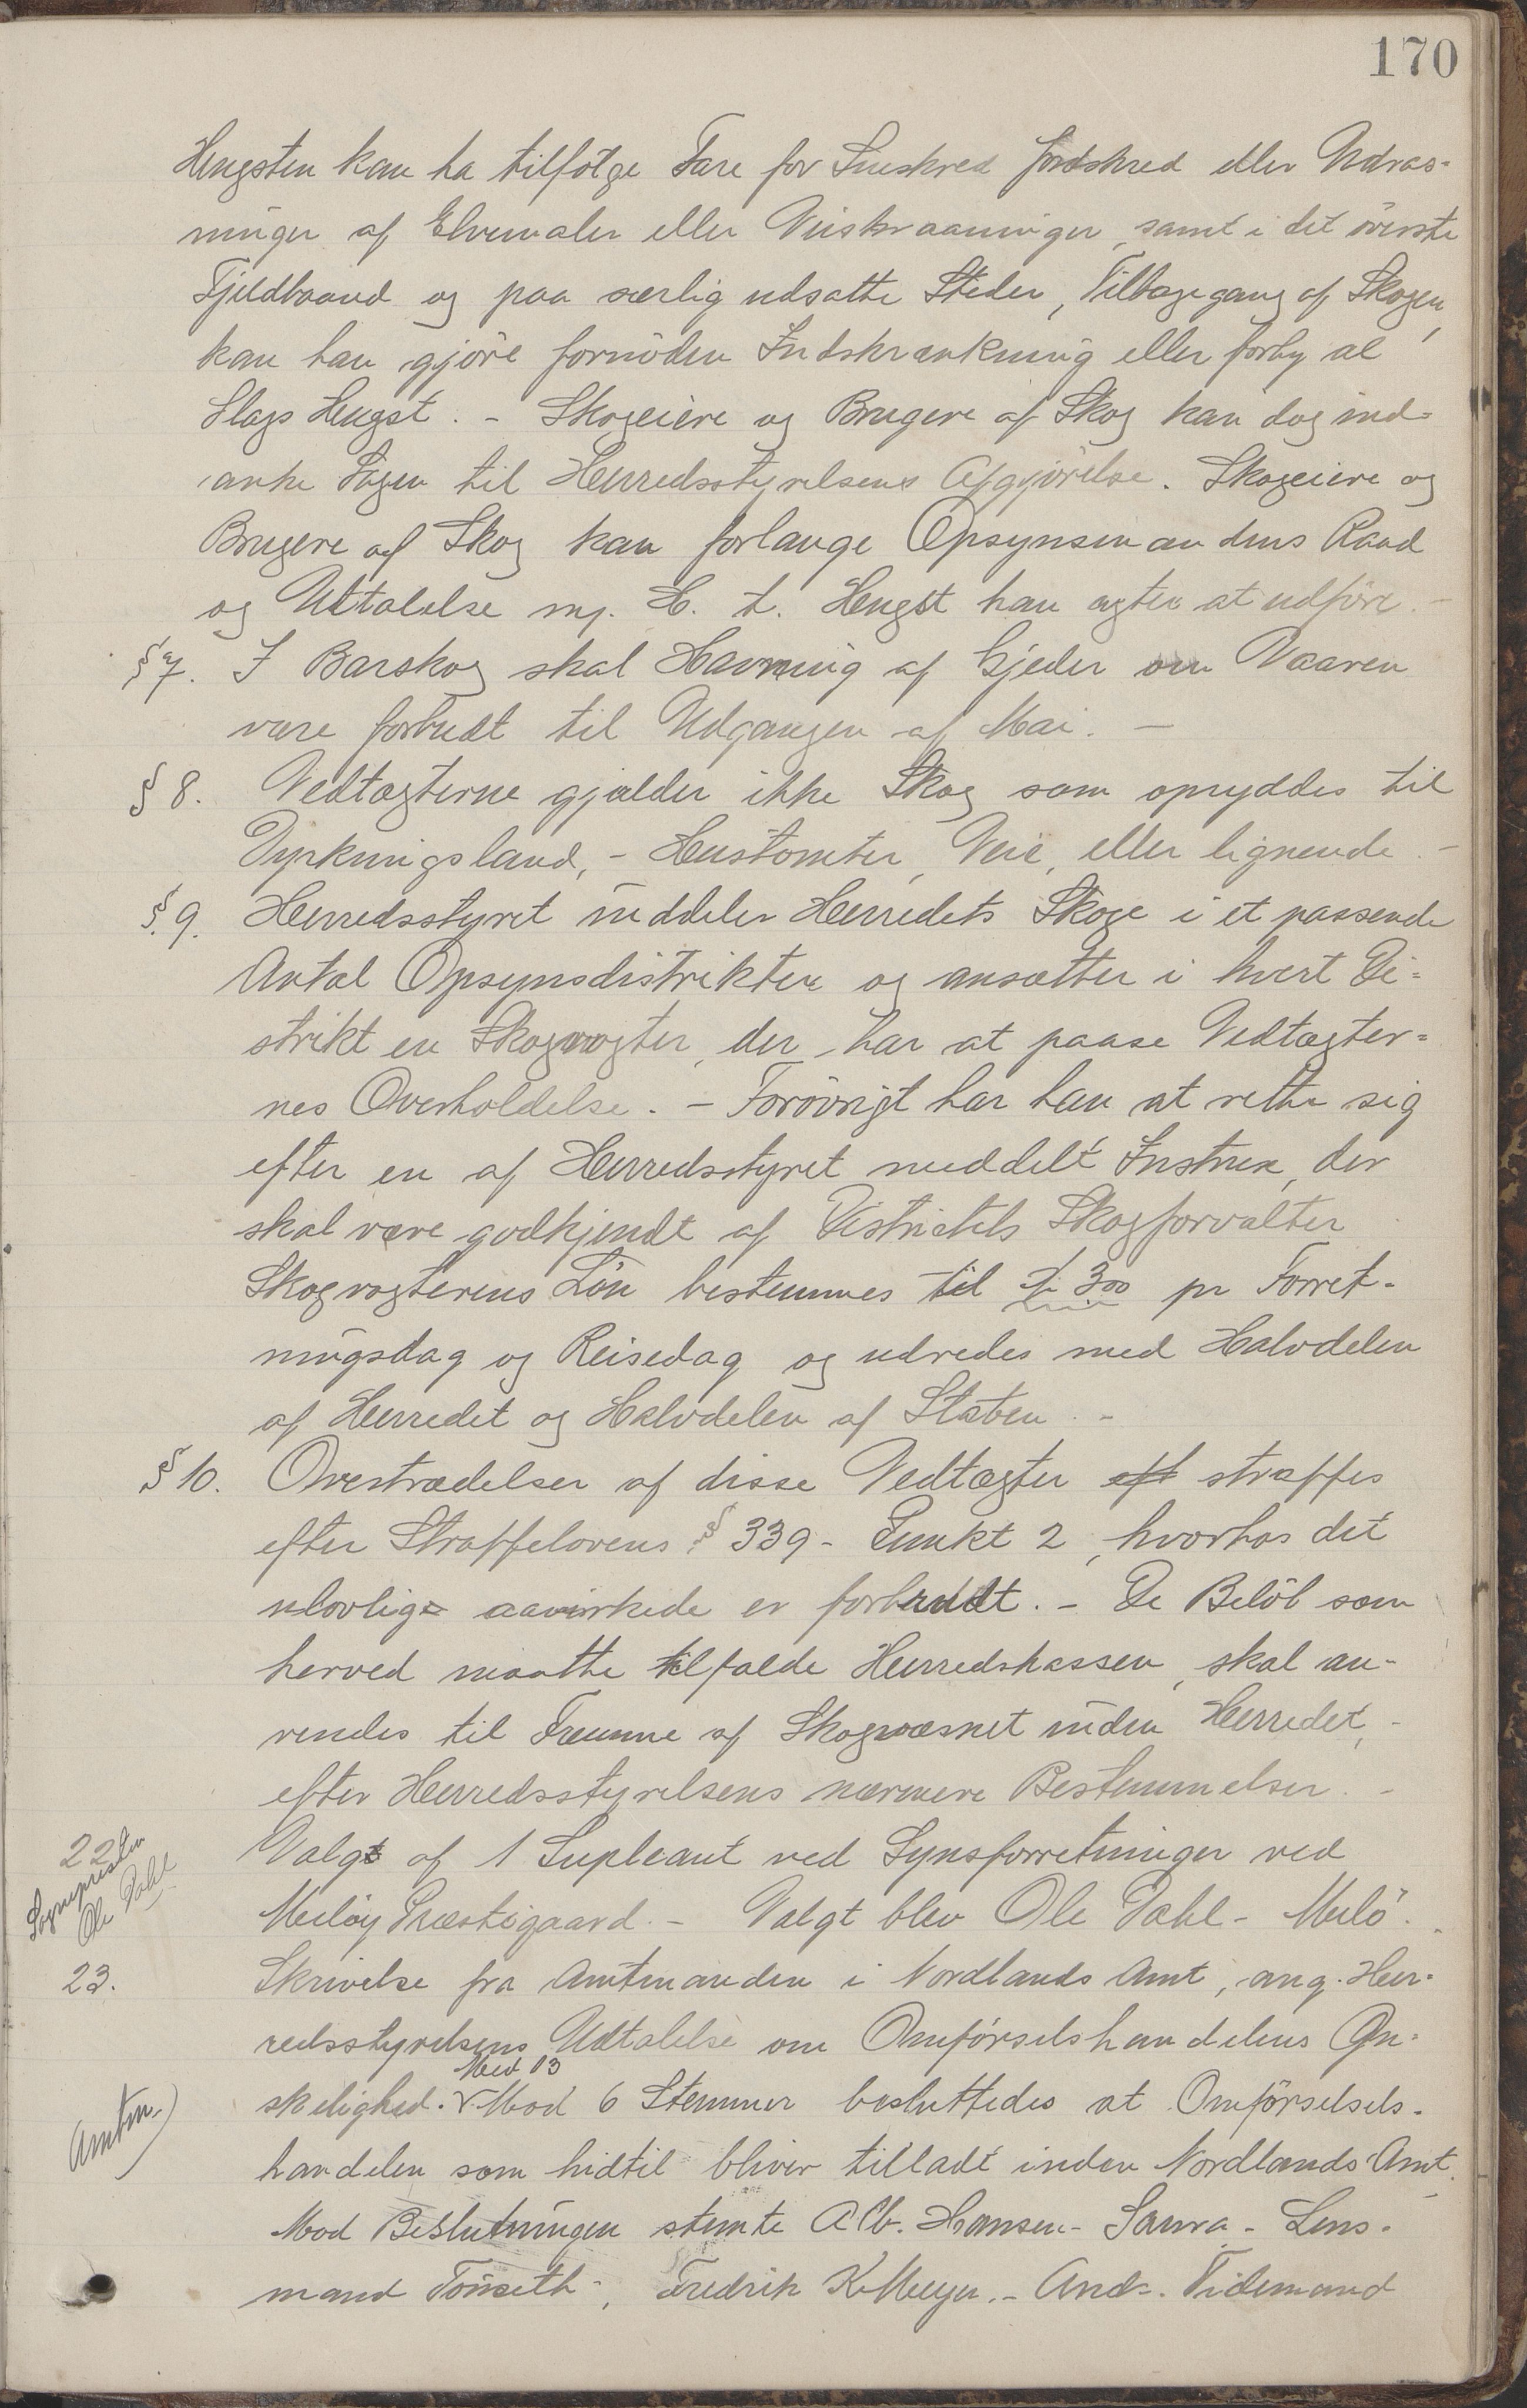 170
Hugsten kan ha tilfølge Fare for Sneskred Jordskred eller Udras-
ninger af Elvemæler eller Veiskraaninger, samt i det øverste
Fjeldbaand og paa særlig udsatte Steder, Tilbagegang af Skogen,
kan han gjøre fornøden Indskrænkning eller forby al
Slags Hugst. - Skogeiere og Brugere af Skog kan dog ind-
anke Sagen til Herredsstyrelsens Afgjørelse. Skogeiere og
Brugere af Skog kan forlange Opsynsmandens Raad
og Uttalelse m. H. t. Hugst han agter at udføre. -
§ 7. I Barskog skal Havning af Gjeder om Vaaren
være forbudt til Udgangen af Mai. -
§ 8. Vedtægterne gjælder ikke Skog som opryddes til
Dyrkningsland, - Hustomter, Veie, eller lignende. -
§. 9. Herredsstyret inddeler Herredets Skoge i et passende
Antal Opsynsdistrikter og ansætter i hvert Di-
strikt en Skogvogter, der har at paase Vedtægter-
nes Overholdelse. - Forøvrigt har han at rette sig
efter en af Herredsstyret meddelt Instrux, der
skal være godkjendt af Distriktets Skogforvalter
Skogvogterens Løn bestemmes til Kr 3oo pr Forret-
ningsdag og Reisedag og udredes med Halvdelen
af Herredet og Halvdelen af Staten. -
§ 10. Overtrædelser af disse Vedtægter eft straffes
efter Straffelovens § 339 - Punkt 2, hvorhos det
ulovlig aavirkede er forbrudt. - De Beløb som
herved maatte tilfalde Herredskassen, skal an-
vendes til Fremme af Skogvæsnet inden Herredet, -
efter Herredsstyrelsens nærmere Bestemmelser. -
22 Valgt af 1 Supleant ved Synsforretninger ved
Sognepresten
Ole Dahl
Meløy Præstegaard. - Valgt blev Ole Dahl - Melø.
23. Skrivelse fra Amtmanden i Nordlands Amt, ang. Her-
redsstyrelsens Udtalelse om Omførselshandelens Øn-
Med 13
skelighed. V. Mod 6 Stemmer besluttedes at Omførselsels-
Amtm.)
handelen som hidtil bliver tilladt inden Nordlands Amt.
Mod Beslutningen stemte Alb. Hansen - Saura - Lens-
mand Tønseth -, Fredrik K. Meyer. - Andr. Tidemand